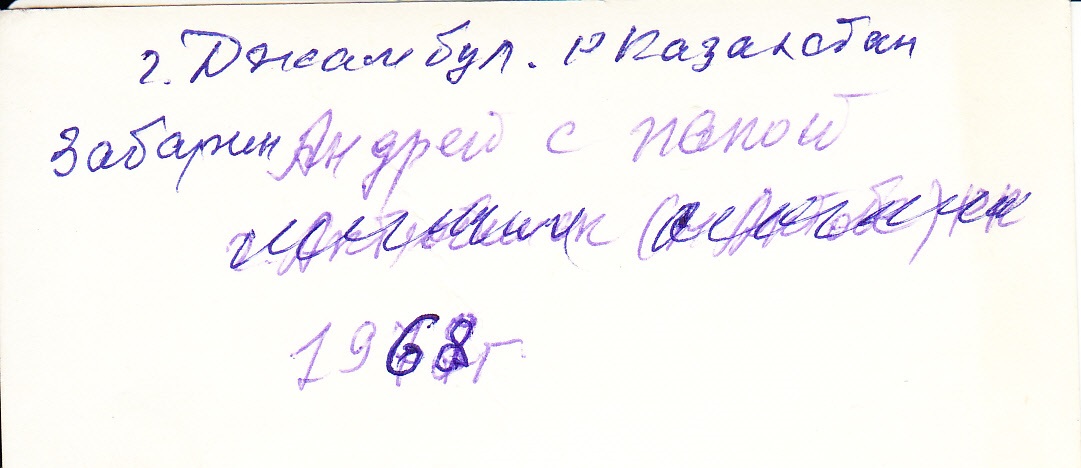 г. Джамбул. р Казахстан
Забарин Андрей с папой
1968г